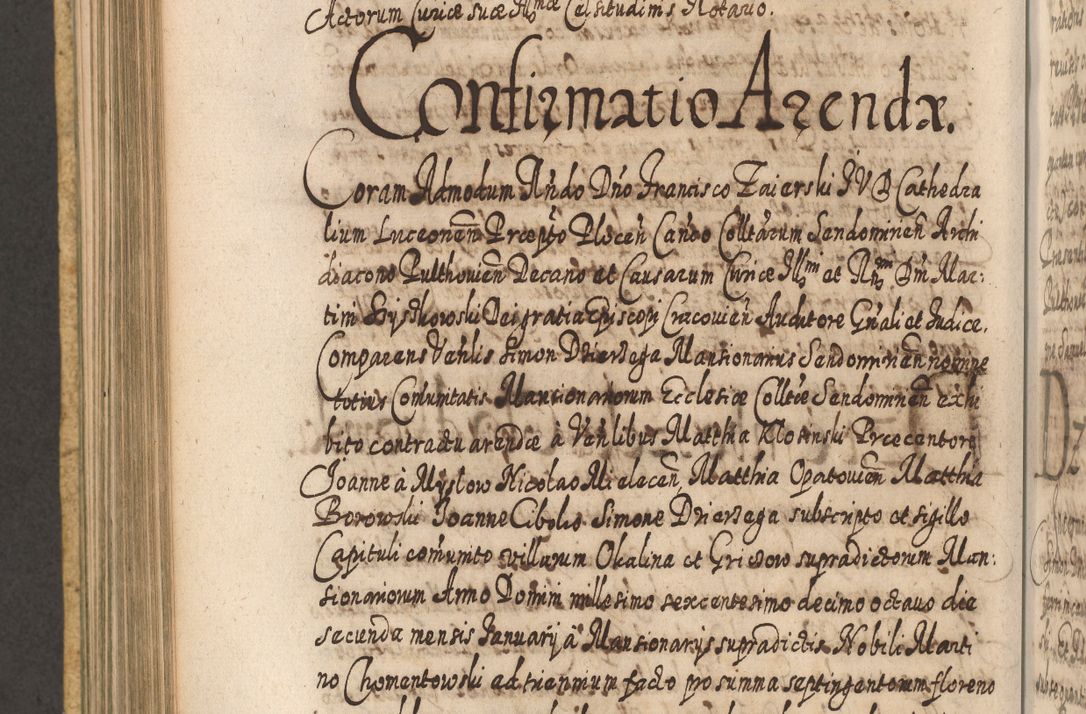 Actorum Curiæ suæ Illmæ Celsitudinis Notario.
Confirmatio Arendæ.
Coram Admodum Rńdo Dńo Francisco Zaierski IVD Cathedra
lium Luceoneñ Præpto Ploceñ Cańco Colltarum Sendomireñ Archi
diacono Pulthovieñ Decano et Causarum Curiæ Illmi et Rńmi Dńi Mar:
tini Szyszkowski Dei gratia Episcopi Cracovieñ Auditore Gńali et Judice.
Comparens Vehlis Simon Dzierzega Mansionarius Sendomirieñ nomine
totius Comunitatis Mansionariorum Ecclesiæ Colltæ Sendomireñ exhi
bito contractu arendæ à Vehlibus Matthia Klosinski Præcentore
Joanne à Myslow Nicolao Mieleceñ Matthia Opatovieñ Matthia
Borowski Joanne Cibolio Simone Dzierzega subscripto et sigillo
Capituli comunito villarum Okalina et Grizow supradictorum Man:
sionariorum Anno Domini millesimo sexcentesimo decimo octavo die
secunda mensis Januarij à Mansionarijs supradictis Nobili Marti
no Chomentowski ad triennium facto pro summa septingentorum floreno